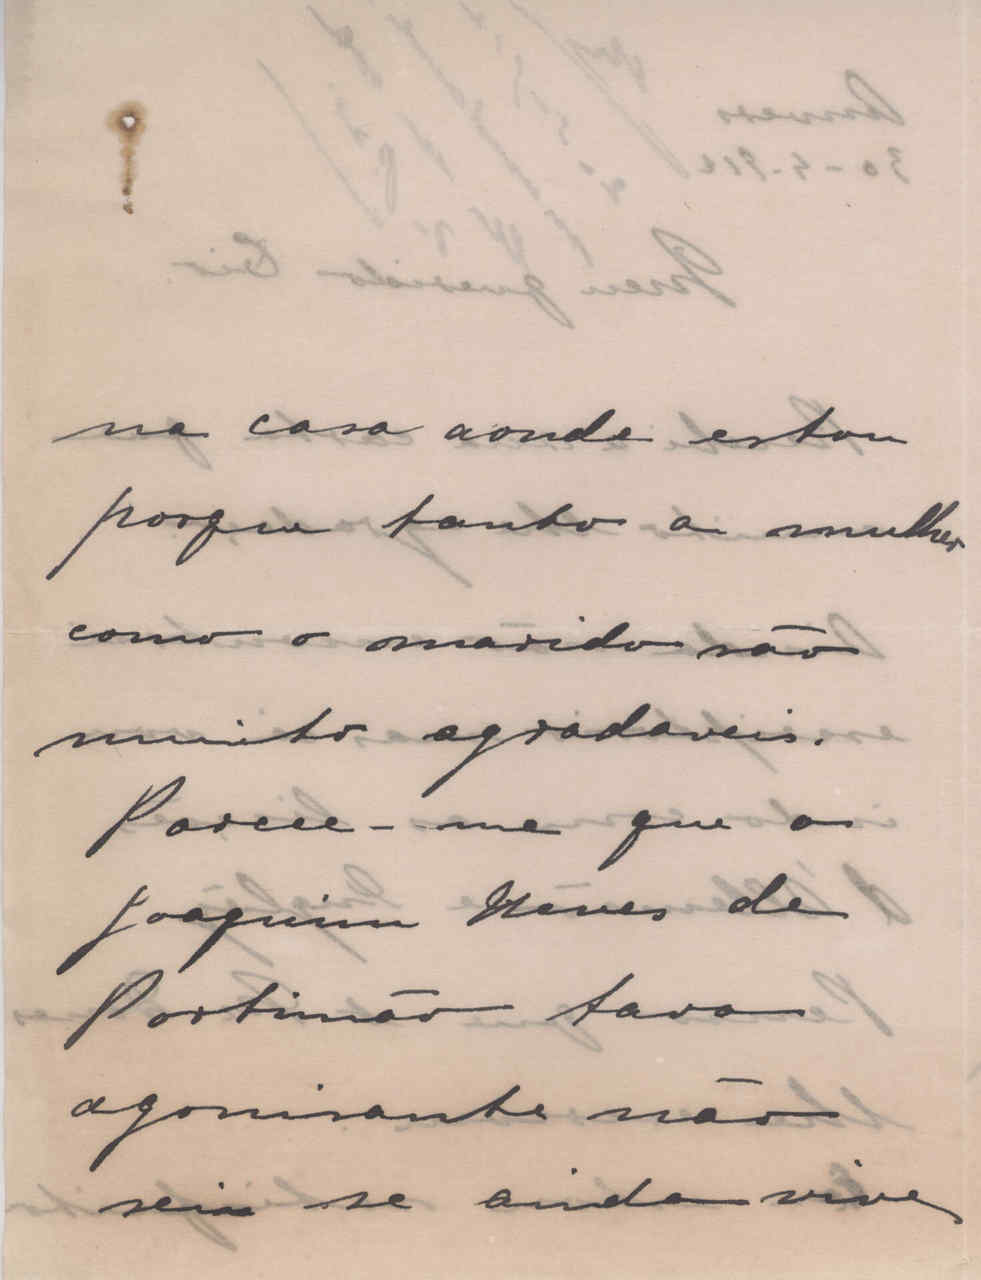 na casa aonde estou
porque tanto a mulher
como o marido são
muito agradaveis.
Parece-me que o
Joaquim Neves de
Portimão tava
agonisante não
sei se ainda vive